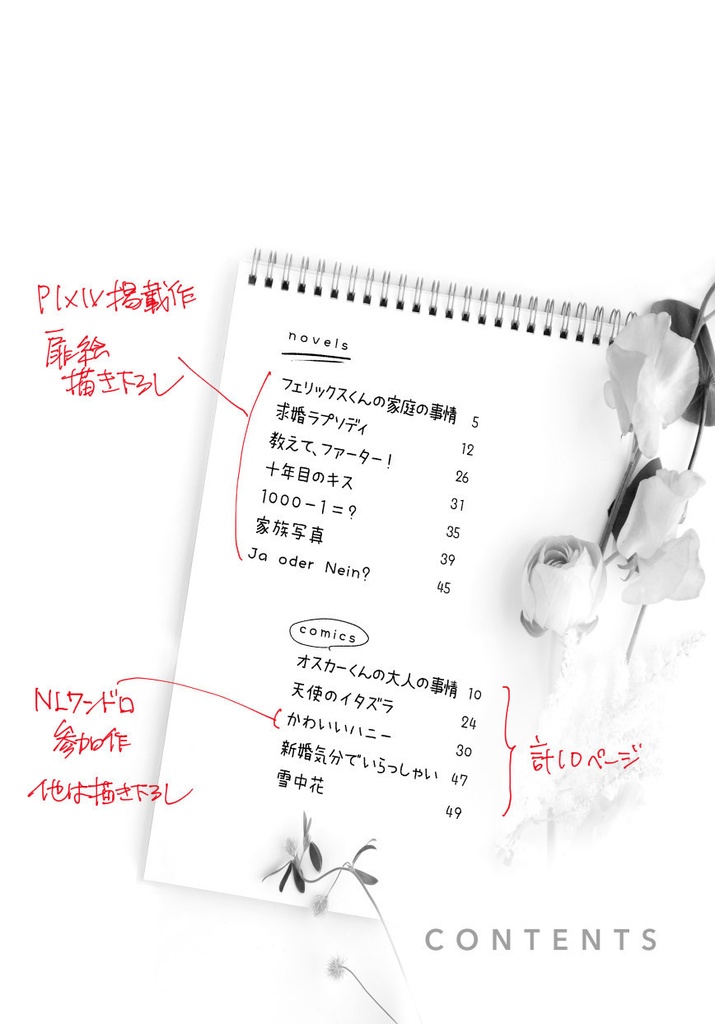 novels
フェリックスくんの家庭の事情 5
求婚ラプソディ 12
教えて、ファーター! 26
十年目のキス 31
1000-1=? 35
家族写真 39
Ja oder Nein? 45
PIXIV掲載作
扉絵
描き下ろし
comics
オスカーくんの大人の事情 10
天使のイタズラ 24
かわいいハニー 30
新婚気分でいらっしゃい 47
雪中花 49
NLワンドロ
参加作
他は描き下ろし
計10ページ
CONTENTS